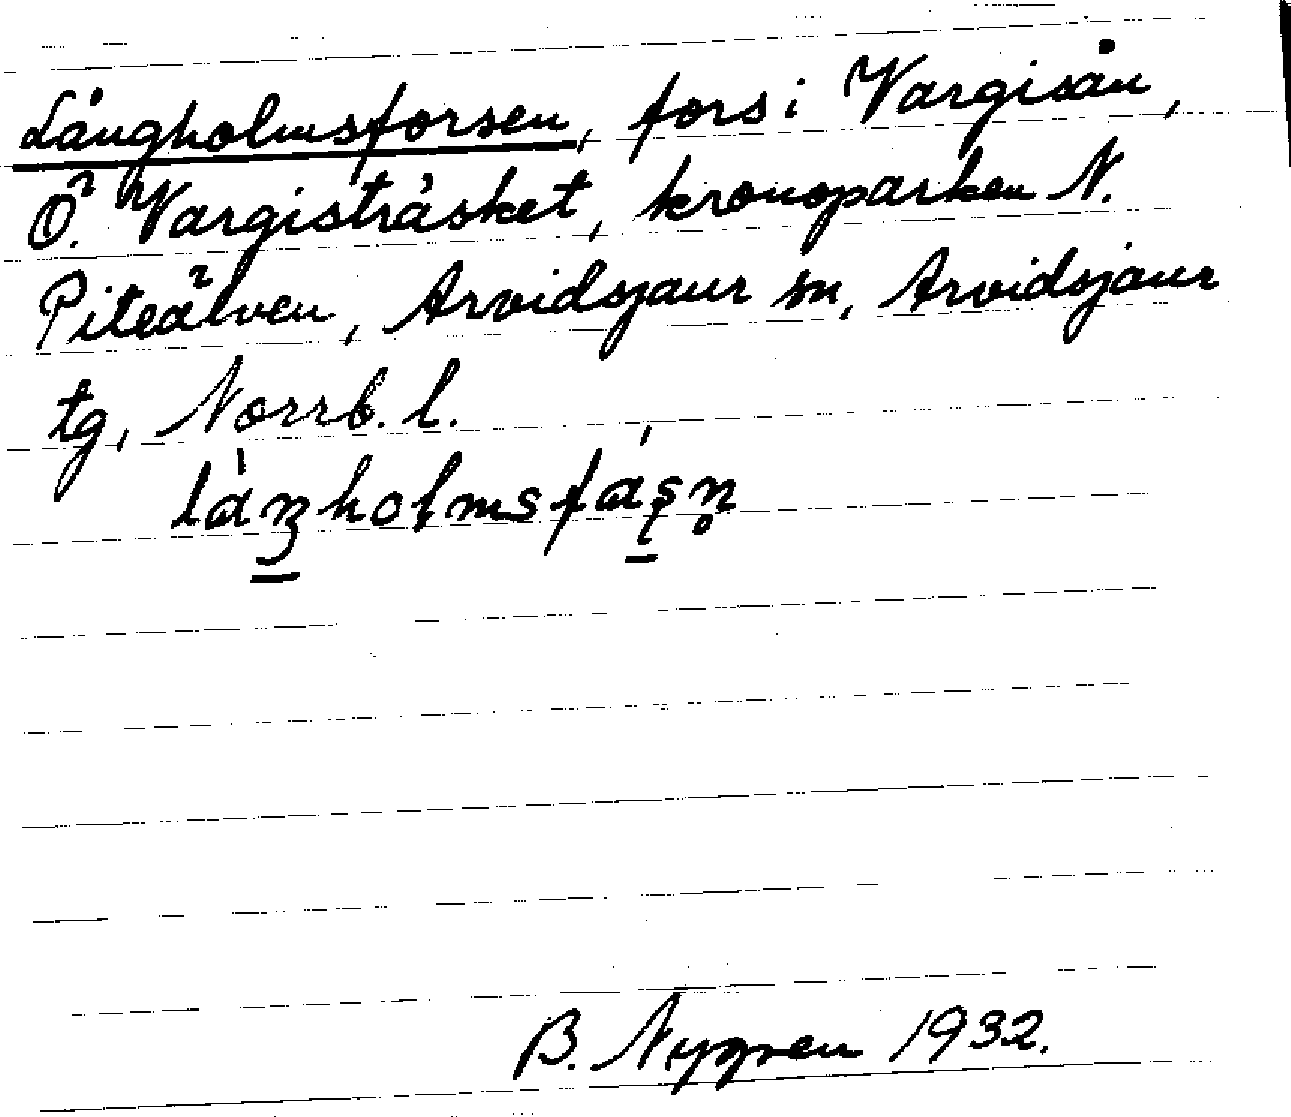 Långholmsforsen, fors i Vargisån,
Ö. Vargisträsket, kronoparken N.
Piteälven, Arvidsjaur sn, Arvidsjaur
tg, Norrb. l.
B. Nygren 1932.